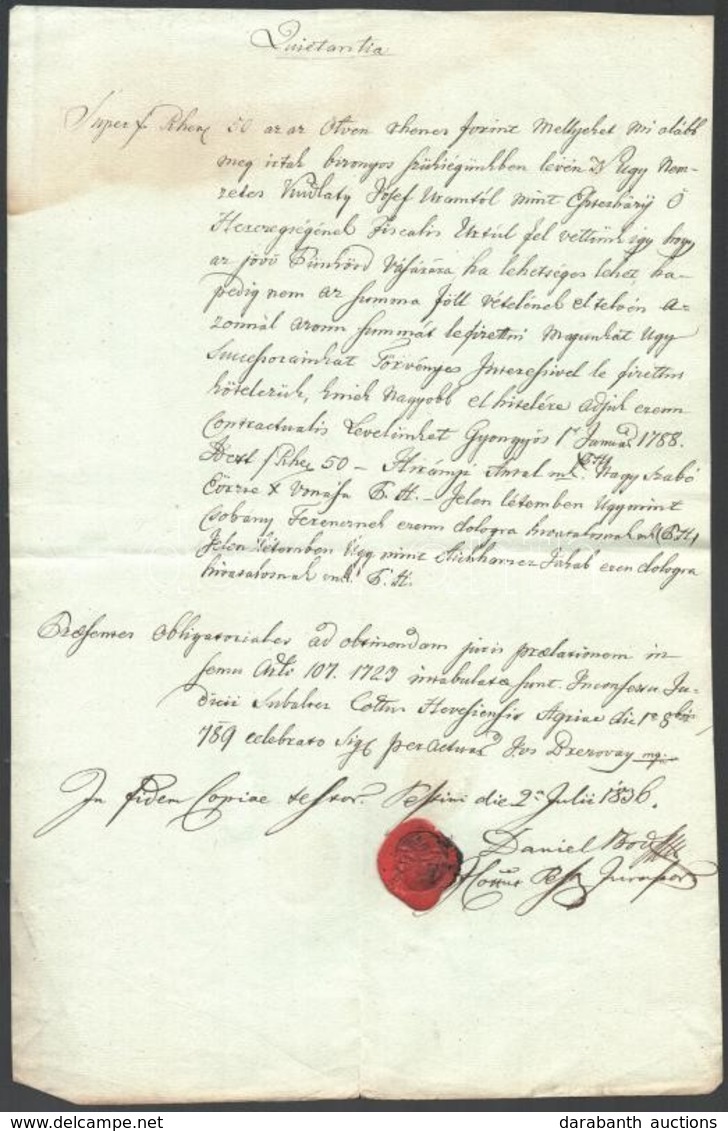 Quietantia
Super f. Rhen 50 az az Ötven rhenes forint Mellyeket mi alább
meg irtak bizonyos szükségünkben lévén Ns Ugy Nem-
zetes Vudlaty Josef Uramtól mint Eszterházy Ő
Herczegségének Fiscalis Urtúl fel vettünk ugy hogy
az jövő Pünkösd Vásárára ha lehetséges lehet, ha-
pedig nem az summa föll vételének el telvén a-
zonnál azonn summát lefizettni Magunkat Ugy
Successorainkat Törvényes Interessivel le fizettni
kötelezük, kinek Nagyobb el hitelére adjuk ezenn
Contractualis Levelünket Gyöngyös 1a Januar 1788.
f Rhen 50 – Antal mk. P.H. Nagy Szabó
Eörzse X Vonása P. H. – Jelen létemben Ugymint
Csobány Ferencznek ezenn dologra hivatalosnak mk (P.H.)
Jelen létemben Ugy mint Jakab ezen dologra
hivatalosnak mk. P. H.
Praesentes Obligatoriales ad obtinendam juris praelationem in
sensu Arti 107. 1723 intabulatae sunt. In consessu Ju-
dicii Subalter Cottus Hevesiensis Agriae die 1a 8bris
789 celebrato Sigl per actuar Jos Dzerovay mp
In fidem Copiae testor. Pestini die 2a Julii 1836.
Daniel
Cottus Pest Jurassor
darabanth auctions